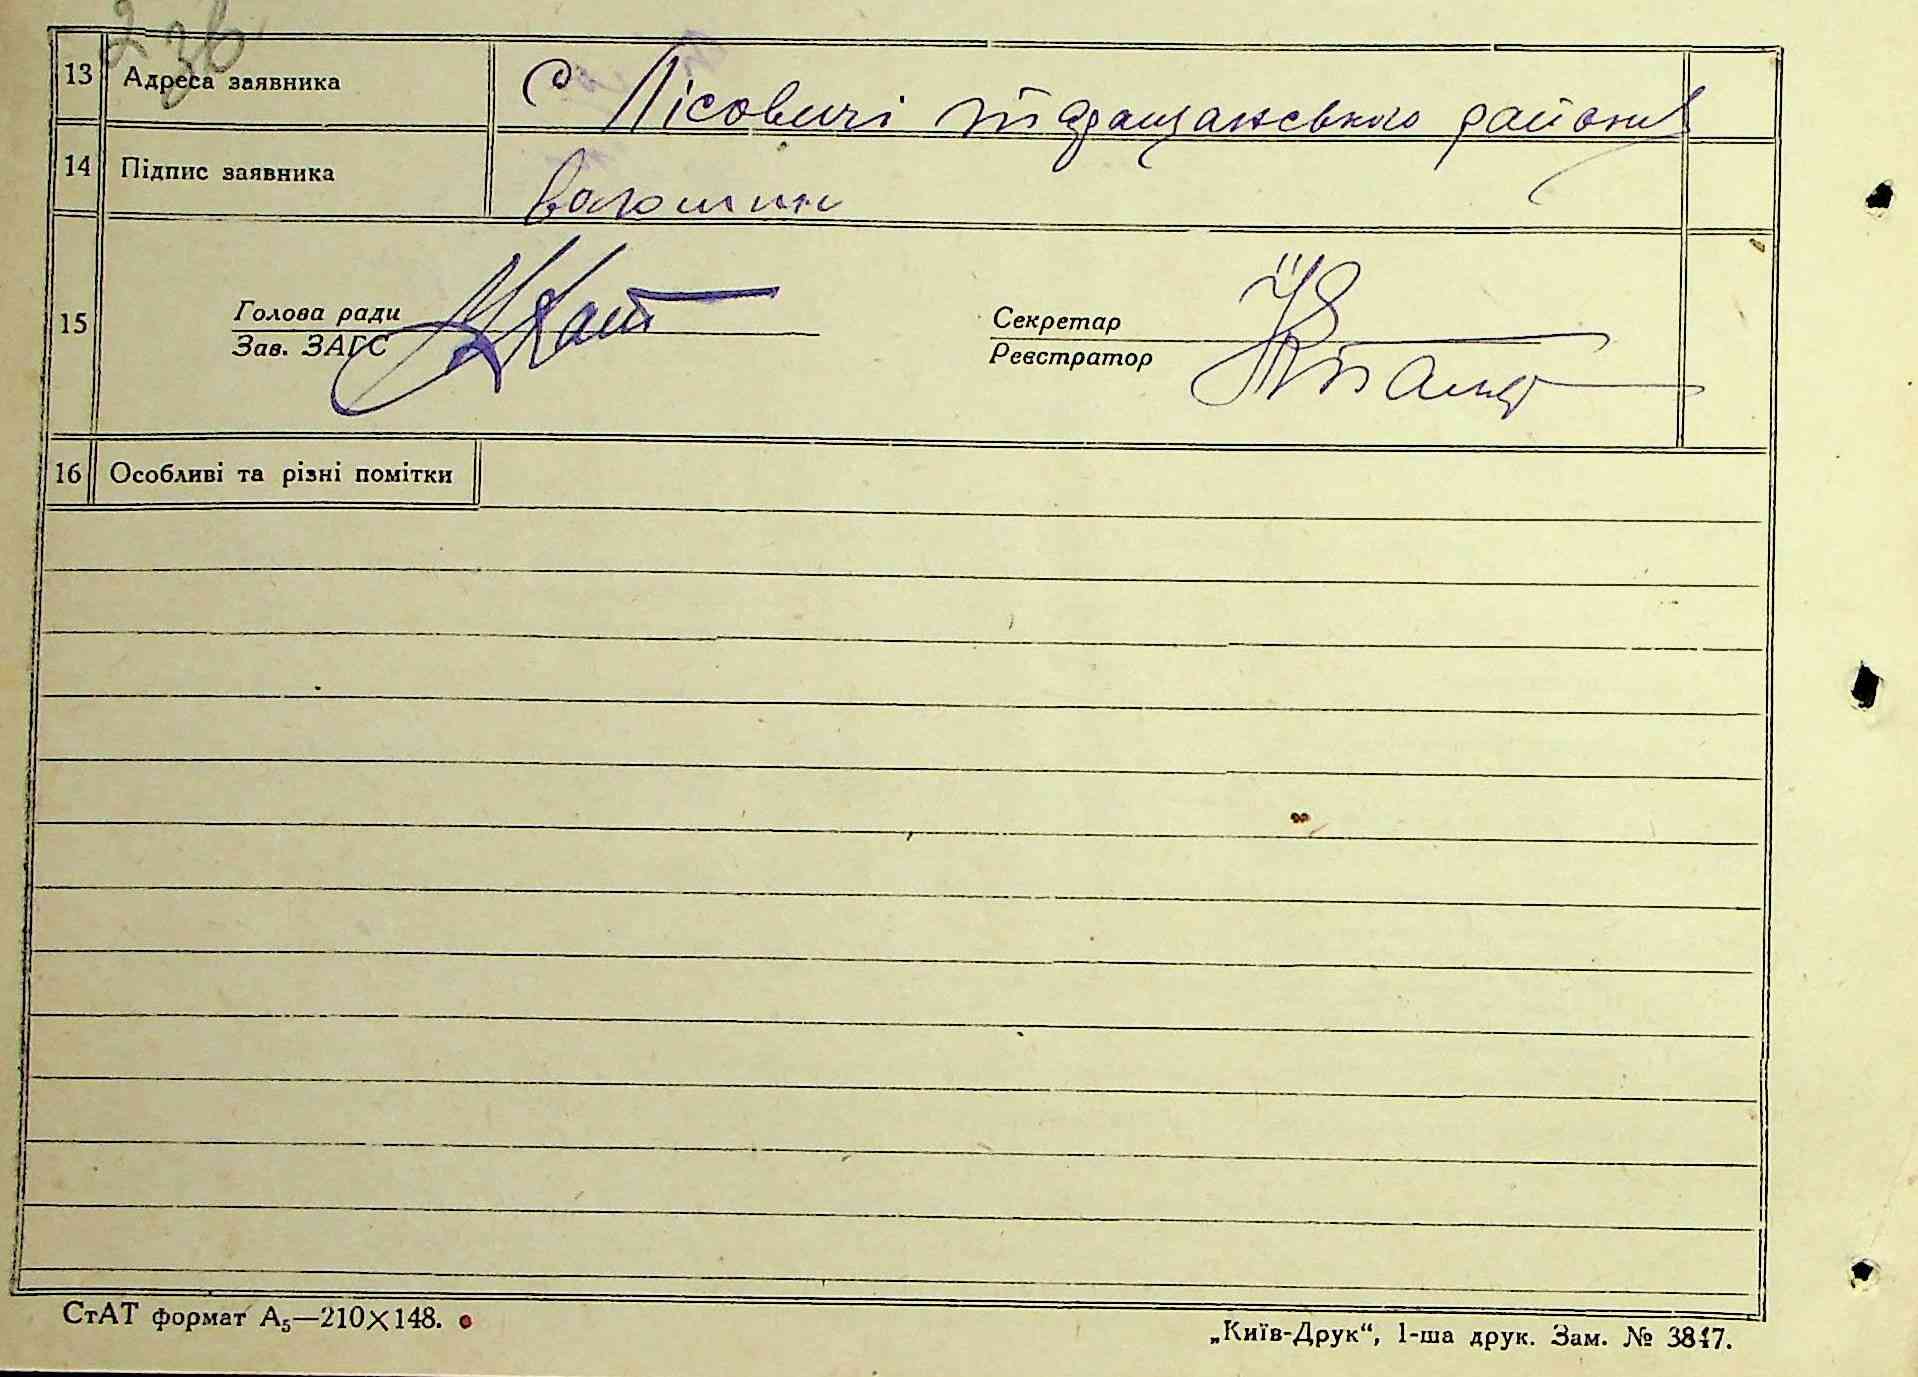 2 зв
13 Адреса заявника с Лісовичі таращанського району
14 Підпис заявника Волошин
15 Голова ради Секретар
Зав. ЗАГС Реєстратор
16 Особливі та різні помітки
СтАТ формат А₅—210×148.
„Київ-Друк“, 1-ша друк. Зам. № 3847.